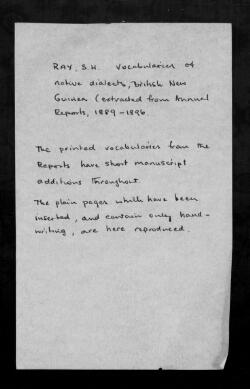 RAY, S.H. Vocabularies of
native dialects, British New
Guinea (extracted from Annual
Reports, 1889-1896.
The printed vocabularies from the
Reports have short manuscript
additions throughout.
The plain pages which have been
inserted, and contain only hand-
writing, are here reproduced.